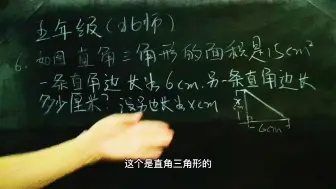 五年级(北师)
6. 如图直角三角形的面积是15cm²
一条直角边长为6cm.另一条直角边长
多少厘米?
x
6cm
这个是直角三角形的